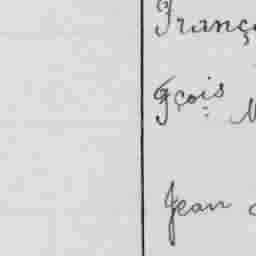 Franç
Fçois M
Jean